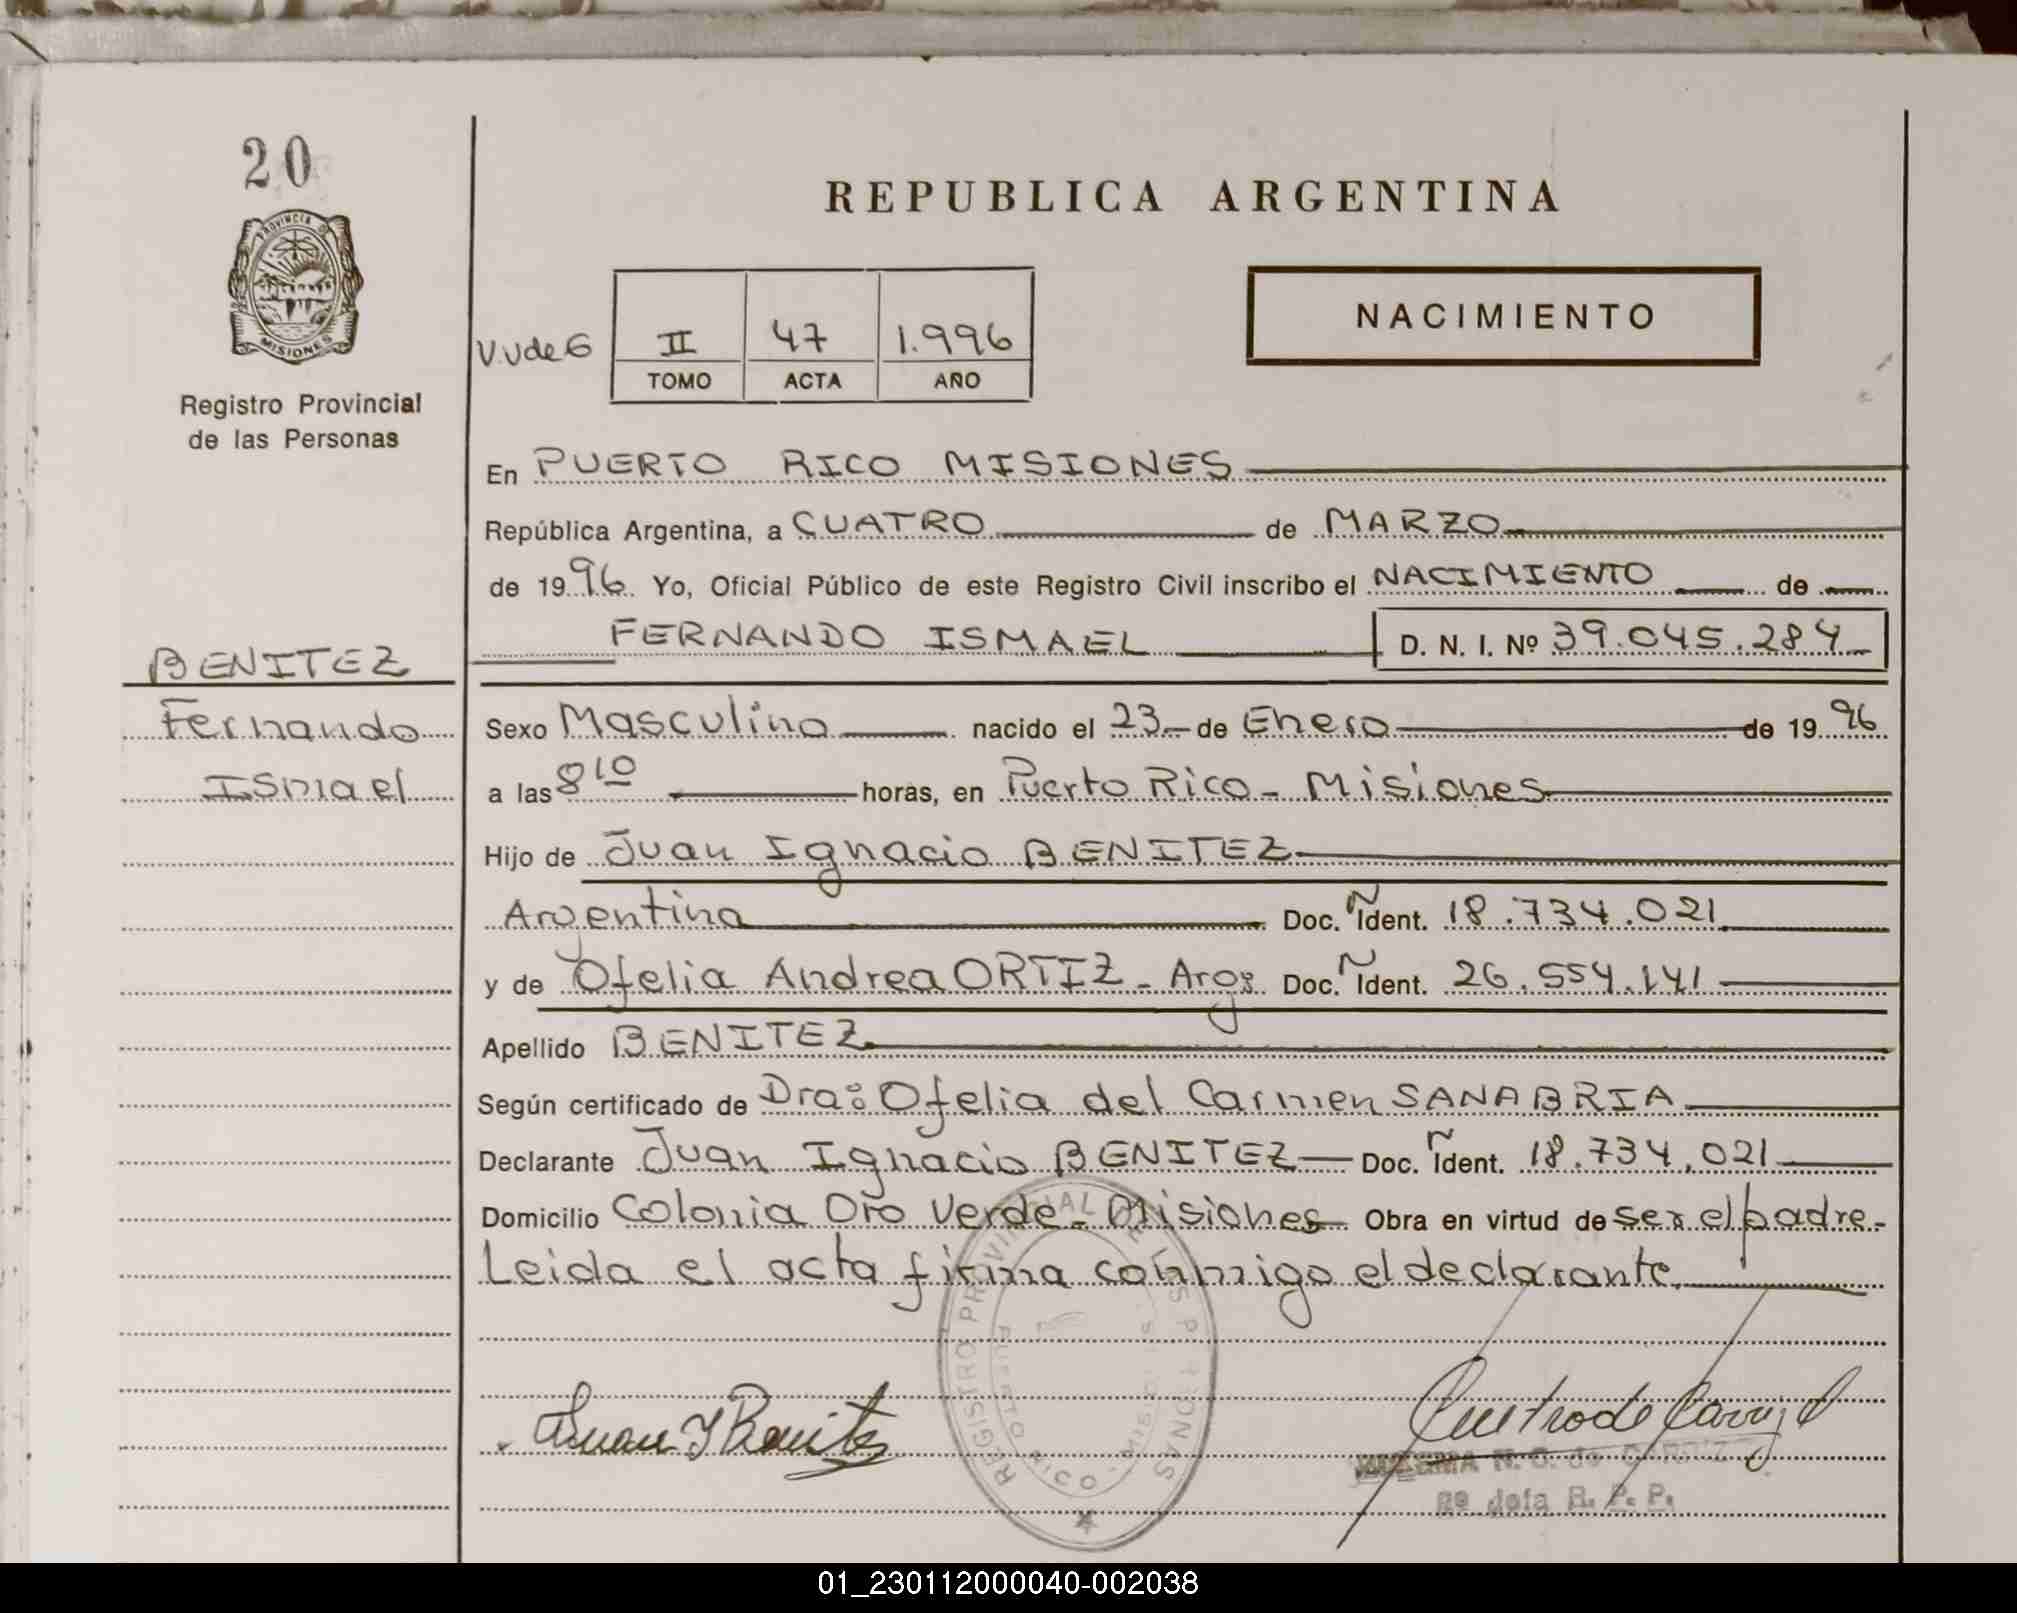 20
PROVINCIA DE
MISIONES
Registro Provincial
de las Personas
REPUBLICA ARGENTINA
V.V de G
II 47 1.996
TOMO ACTA AÑO
NACIMIENTO
En PUERTO RICO MISIONES
República Argentina, a CUATRO de MARZO
de 1996. Yo, Oficial Público de este Registro Civil inscribo el NACIMIENTO de
FERNANDO ISMAEL D. N. I. Nº 39.045.284
BENITEZ
Fernando
Ismael
Sexo Masculino nacido el 23 de Enero de 1996
a las 8 10 horas, en Puerto Rico - Misiones
Hijo de Juan Ignacio BENITEZ
Argentina Doc. Ñ Ident. 18.734.021
y de Ofelia Andrea ORTIZ - Arg: Doc. Ñ Ident. 26.554.141
Apellido BENITEZ
Según certificado de Dra: Ofelia del Carmen SANABRIA
Declarante Juan Ignacio BENITEZ Doc. Ñ Ident. 18.734.021
Domicilio Colonia Oro Verde - Misiones Obra en virtud de ser el padre-
Leida el acta firma conmigo el declarante.
REGISTRO PROVINCIAL DE LAS PERSONAS
PUERTO RICO - MISIONES
Juan I Benitez
N. C. de
R. P. P.
01_230112000040-002038